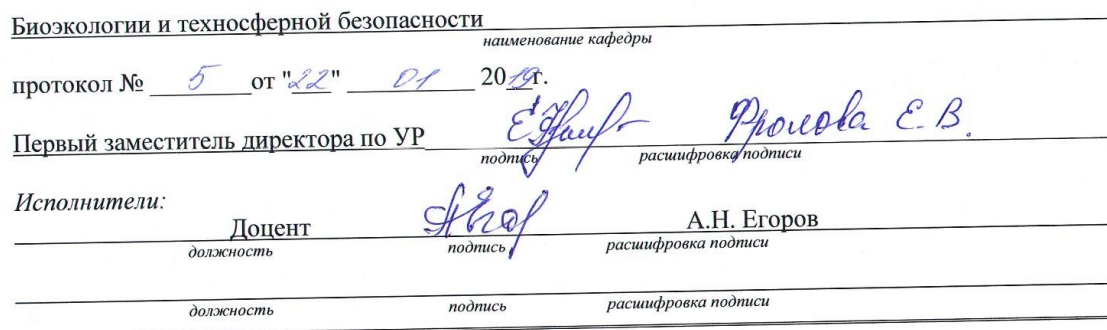 Биоэкологии и техносферной безопасности
наименование кафедры
протокол № 5 от "22" 01 2019г.
Первый заместитель директора по УР Фролова Е.В.
подпись расшифровка подписи
Исполнители:
Доцент А.Н. Егоров
должность подпись расшифровка подписи
должность подпись расшифровка подписи